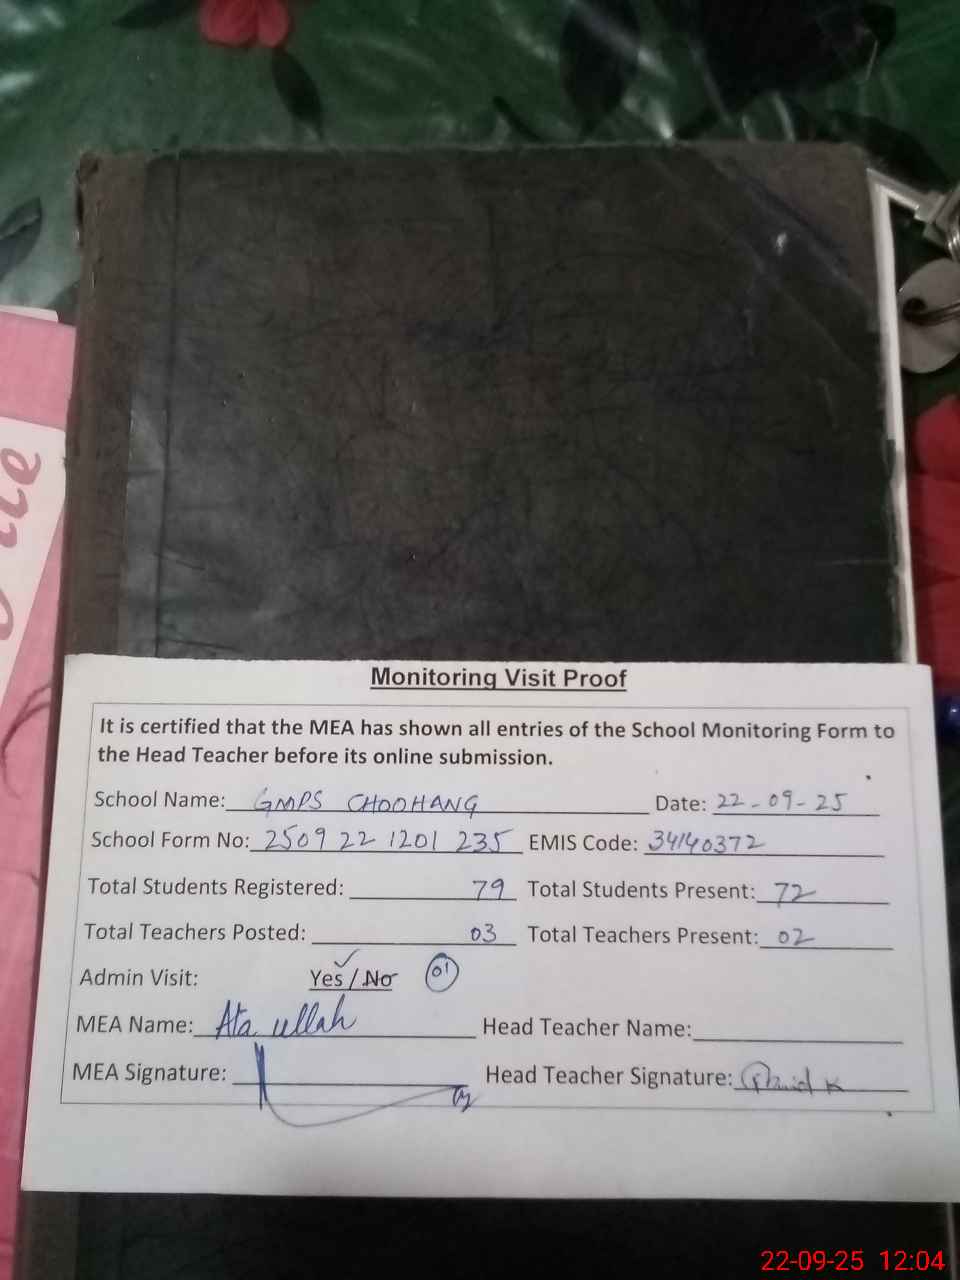 Monitoring Visit Proof
It is certified that the MEA has shown all entries of the School Monitoring Form to
the Head Teacher before its online submission.
School Name: GMPS CHOOHANG Date: 22-09-25
School Form No: 2509 22 1201 235 EMIS Code: 34140372
Total Students Registered: 79 Total Students Present: 72
Total Teachers Posted: 03 Total Teachers Present: 02
Admin Visit: Yes / No 01
MEA Name: Ata ullah Head Teacher Name:
MEA Signature: Head Teacher Signature:
22-09-25 12:04